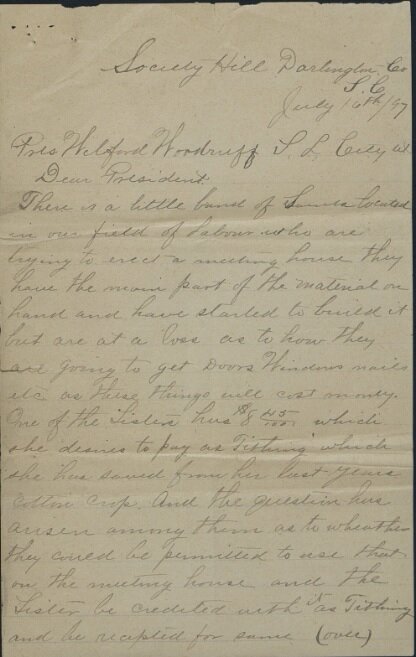 Society Hill Darlington Co
S.C.
July 16th/97
Pres Wilford Woodruff S. L. City ut
Dear President:
There is a little band of Saints located
in our field of labour who are
trying to erect a meeting house they
have the main part of the material on
hand and have started to build it
but are at a loss as to how they
are going to get Doors Windows nails
etc as these things will cost money.
One of the Sisters has $8 45/100 which
she desires to pay as Tithing which
she has saved from her last years
cotton crop. And the question has
arisen among them as to wheather
they could be permitted to use that
on the meeting house and the
Sister be credited with it as Tithing
and be recepted for same (over)